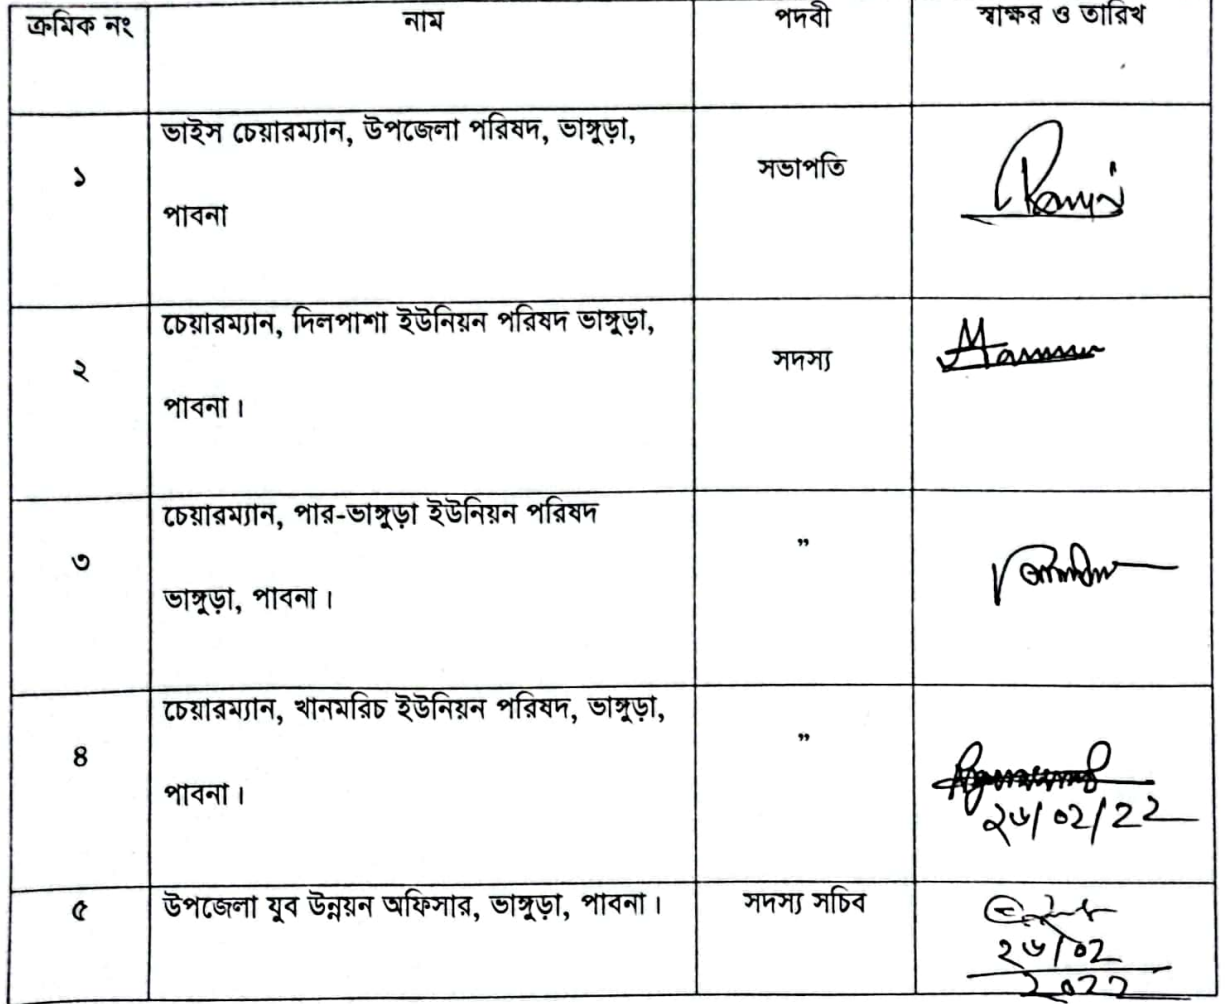 ক্রমিক নং নাম পদবী স্বাক্ষর ও তারিখ
১ ভাইস চেয়ারম্যান, উপজেলা পরিষদ, ভাঙ্গুড়া, সভাপতি
পাবনা
২ চেয়ারম্যান, দিলপাশা ইউনিয়ন পরিষদ ভাঙ্গুড়া, সদস্য
পাবনা।
৩ চেয়ারম্যান, পার-ভাঙ্গুড়া ইউনিয়ন পরিষদ ”
ভাঙ্গুড়া, পাবনা।
৪ চেয়ারম্যান, খানমরিচ ইউনিয়ন পরিষদ, ভাঙ্গুড়া, ”
পাবনা।
২৬/০২/22
৫ উপজেলা যুব উন্নয়ন অফিসার, ভাঙ্গুড়া, পাবনা। সদস্য সচিব
২৬/০2
2022